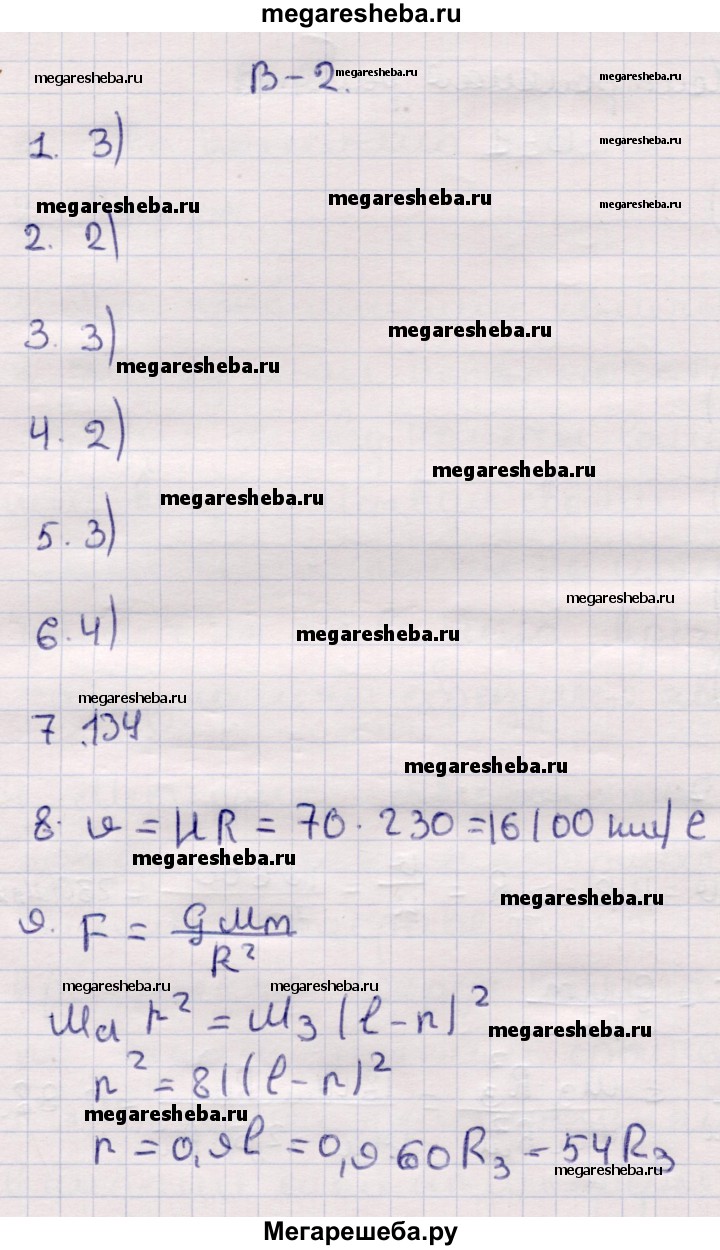 megaresheba.ru
megaresheba.ru В-2. megaresheba.ru megaresheba.ru
1. 3) megaresheba.ru
megaresheba.ru megaresheba.ru megaresheba.ru
2. 2)
3. 3) megaresheba.ru
megaresheba.ru
4. 2)
megaresheba.ru
megaresheba.ru
5. 3)
megaresheba.ru
6. 4) megaresheba.ru
megaresheba.ru
7. 134
megaresheba.ru
8. v = HR = 70 · 230 = 16100 км/с
megaresheba.ru
megaresheba.ru
9. F = GMm / R²
megaresheba.ru megaresheba.ru
Mл r² = M3 (l - r)²
megaresheba.ru
r² = 81 (l - r)²
megaresheba.ru
r = 0,9l = 0,9 60R3 = 54R3
megaresheba.ru
Мегарешеба.ру